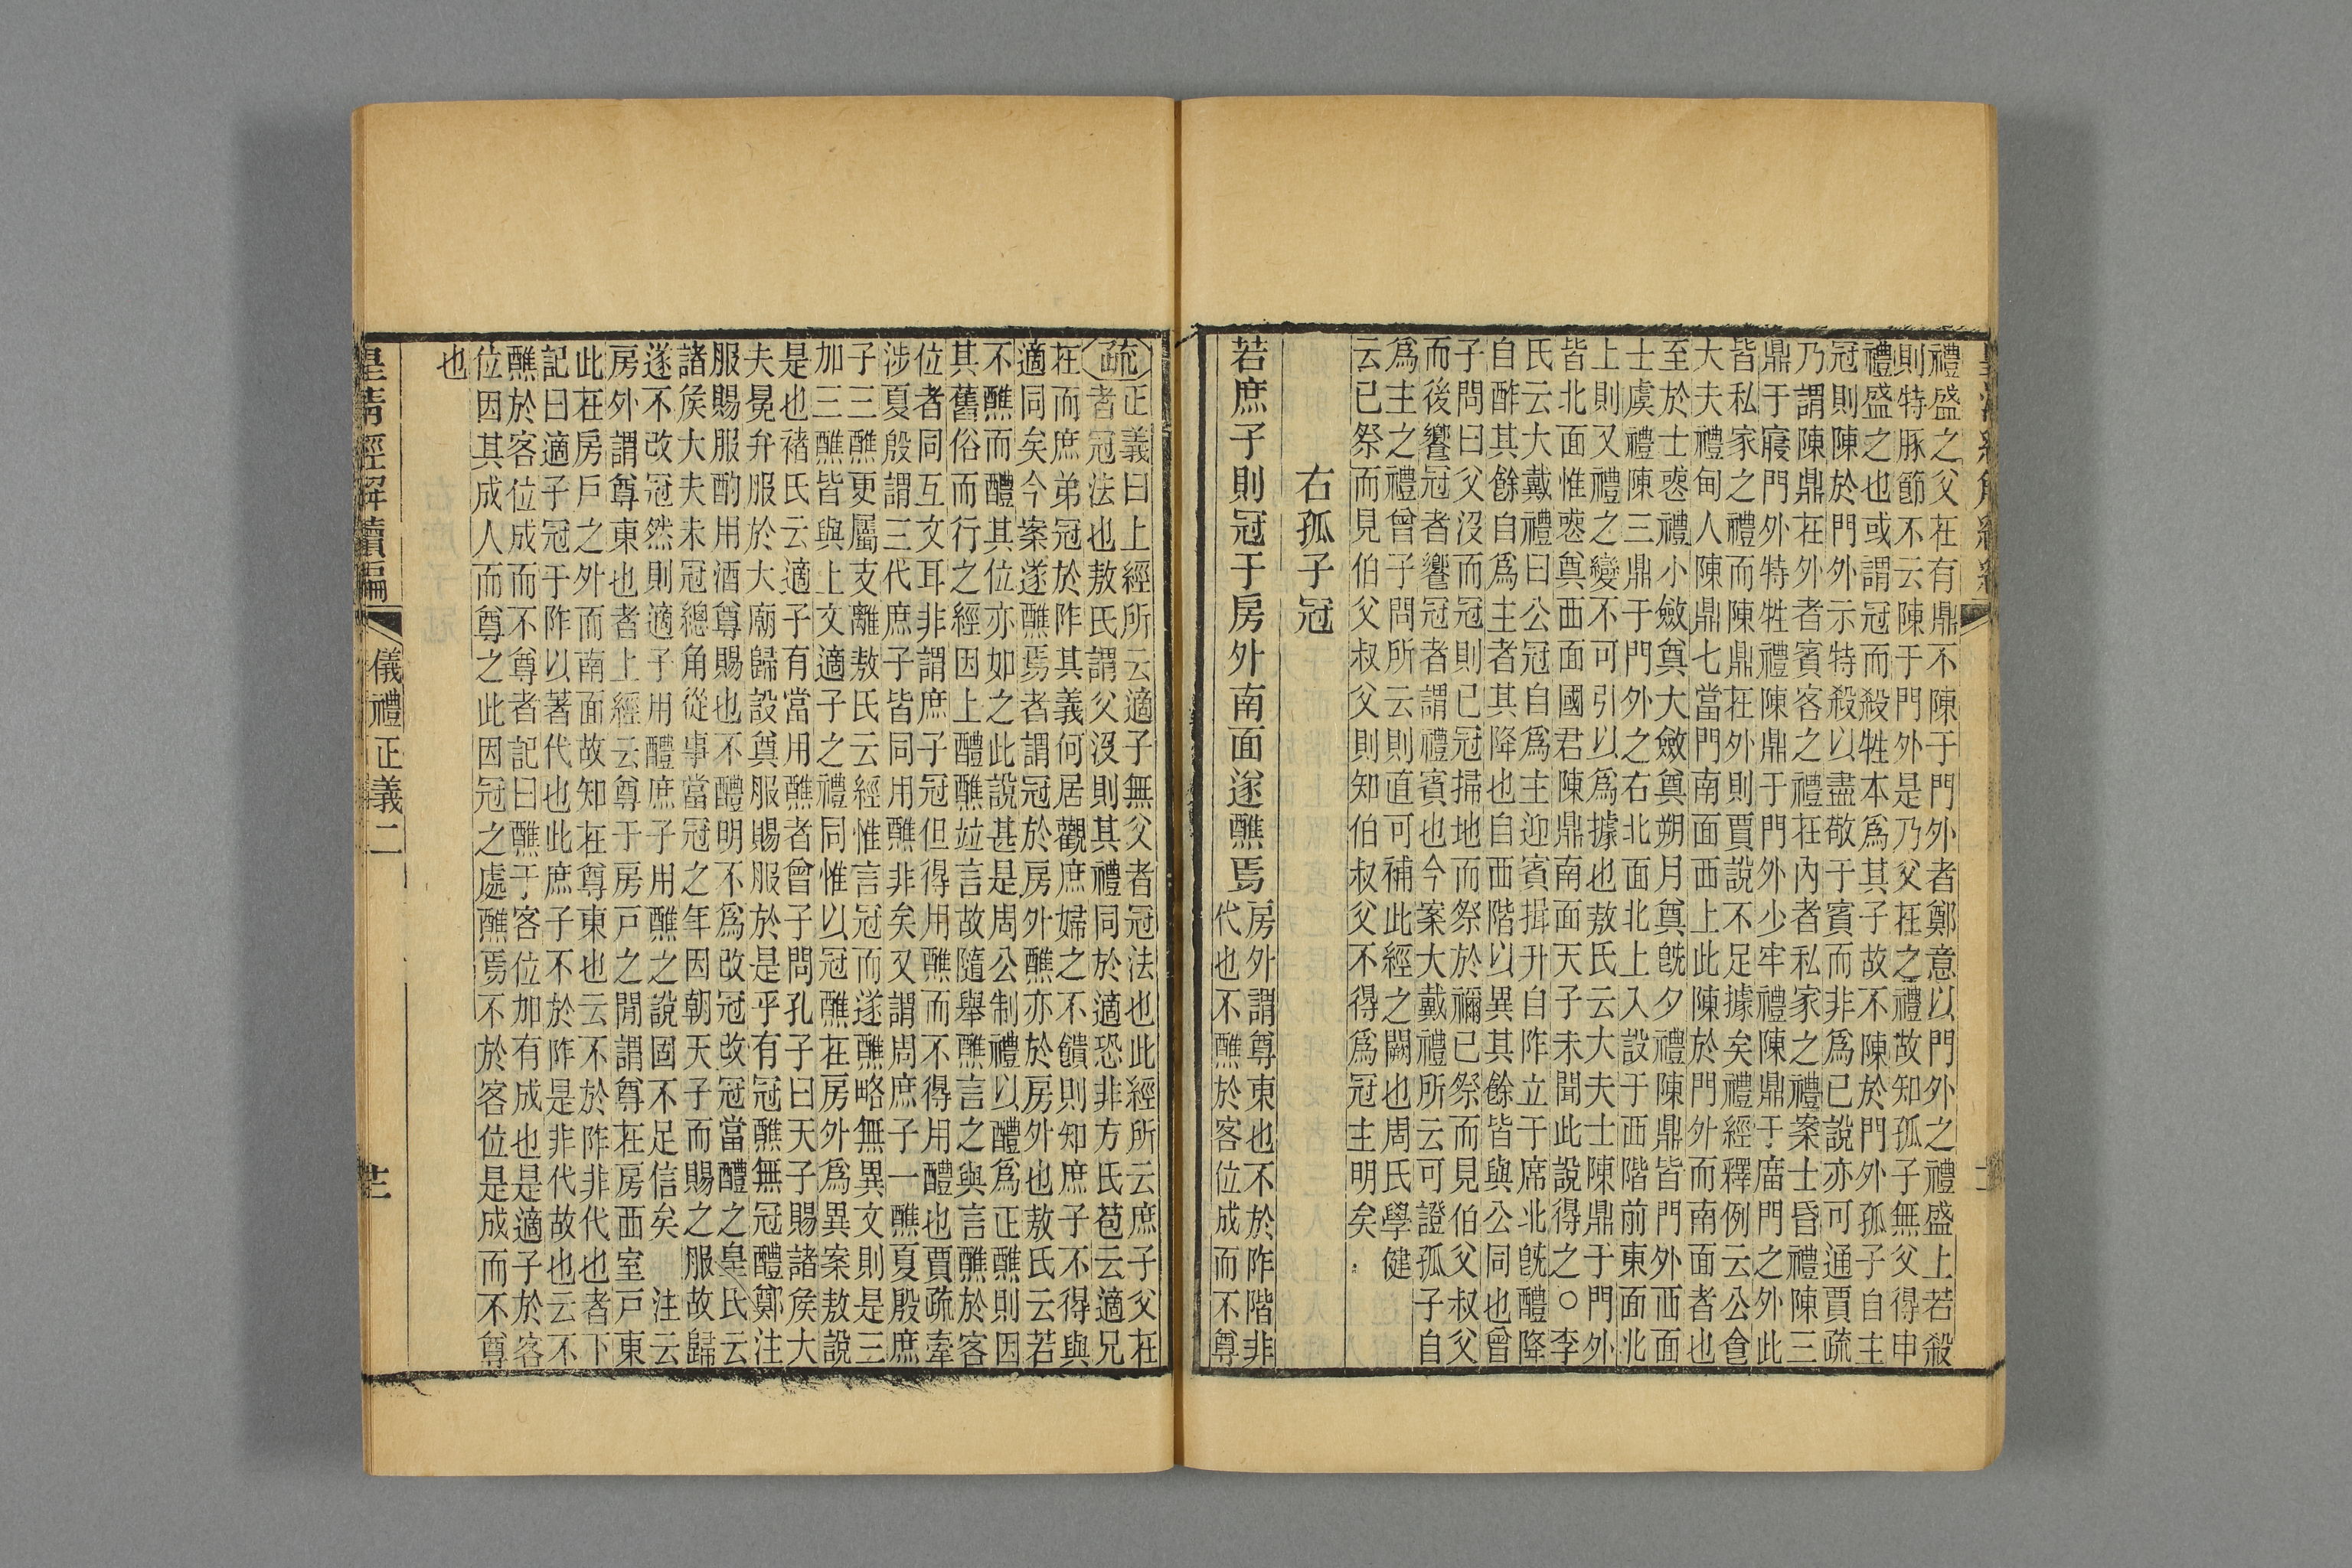 禮盛之父在有鼎不陳于門外者鄭意以門外之禮盛上若殺
則特豚節不云陳于門外是乃父在之禮故知孤子無父得申
禮盛之也或謂冠而殺牲本為其子故不陳於門外孤子自主
冠則陳於門外示特殺以盡敬于賓而非為已說亦可通賈疏
乃謂陳鼎在外者賓客之禮在內者私家之禮案士昏禮陳三
鼎于寢門外特牲禮陳鼎于門外少牢禮陳鼎于廟門之外此
皆私家之禮而陳鼎在外則賈說不足據矣禮經釋例云公食
大夫禮甸人陳鼎七當門南面西上此陳於門外而南面者也
至於士喪禮小斂奠大斂奠朔月奠旣夕禮陳鼎皆門外西面
士虞禮陳三鼎于門外之右北面北上入設于西階前東面北
上則又禮之變不可引以為據也敖氏云大夫士陳鼎于門外
皆北面惟喪奠西面國君陳鼎南面天子未聞此說得之○李
氏云大戴禮曰公冠自為主迎賓揖升自阼立于席北旣醴降
自酢其餘自為主者其降也自西階以異其餘皆與公同也曾
子問曰父沒而冠則已冠掃地而祭於禰已祭而見伯父叔父
而後饗冠者饗冠者謂禮賓也今案大戴禮所云可證孤子自
為主之禮曾子問所云則直可補此經之闕也周氏學健
云已祭而見伯父叔父則知伯叔父不得為冠主明矣
右孤子冠
若庶子則冠于房外南面遂醮焉
房外謂尊東也不於阼階非
代也不醮於客位成而不尊
疏
正義曰上經所云適子無父者冠法也此經所云庶子父在
者冠法也敖氏謂父沒則其禮同於適恐非方氏苞云適兄
在而庶弟冠於阼其義何居觀庶婦之不饋則知庶子不得與
適同矣今案遂醮焉者謂冠於房外醮亦於房外也敖氏云若
不醮而醴其位亦如之此說甚是周公制禮以醴為正醮則因
其舊俗而行之經因上醴醮竝言故隨舉醮言之與言醮於客
位者同互文耳非謂庶子冠但得用醮而不得用醴也賈疏牽
涉夏殷謂三代庶子皆同用醮非矣又謂周庶子一醮夏殷庶
子三醮更屬支離敖氏云經惟言冠而遂醮略無異文則是三
加三醮皆與上文適子之禮同惟以冠醮在房外為異案敖說
是也褚氏云適子有當用醮者曾子問孔子曰天子賜諸侯大
夫冕弁服於大廟歸設奠服賜服於是乎有冠醮無冠醴鄭注
服賜服酌用酒尊賜也不醴明不為改冠改冠當醴之皇氏云
諸侯大夫未冠總角從事當冠之年因朝天子而賜之服故歸
遂不改冠然則適子用醴庶子用醮之說固不足信矣　注云
房外謂尊東也者上經云尊于房戶之閒謂尊在房西室戶東
此在房戶之外而南面故知在尊東也云不於阼非代也者下
記曰適子冠于阼以著代也此庶子不於阼是非代故也云不
醮於客位成而不尊者記曰醮于客位加有成也是適子於客
位因其成人而尊之此因冠之處醮焉不於客位是成而不尊
也
皇淸經解續編
儀禮正義二